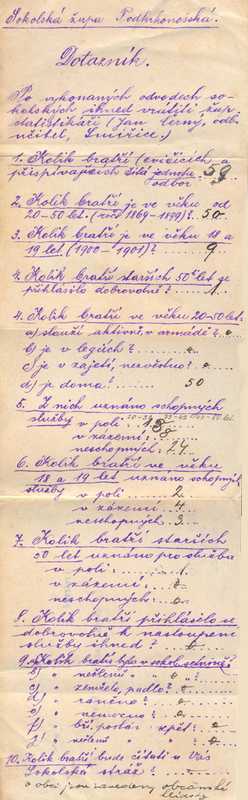 Sokolská župa Podkrkonošská.
Dotazník.
Po vykonaných odvodech so-
kolských ihned vrátiti žup.
statistikáři (Jan Černý, odb.
učitel, Smiřice.)
1. Kolik bratří (cvičících a
přispívajících čítá jednota- 59
odbor
2. Kolik bratří je ve věku od
20-50 let. (roč. 1869-1899)? 50
3. Kolik bratří je ve věku 18 a
19 let (1900-1901)? 9
4. Kolik bratří starších 50ti let se
přihlásilo dobrovolně? 1
4. Kolik bratří ve věku 20-50 let:
a) slouží aktivně v armádě?
b) je v legiích?
c) je v zajetí, nezvěstno?
d) je doma? 50
5. Z nich uznáno schopných
služby v poli 18
v zázemí 8
neschopných 24
6. Kolik bratří ve věku
18 a 19 let uznáno schopných
služby v poli 2
v zázemí 4
neschopných 3
7. Kolik bratří starších
50 let uznáno pro službu
v poli: 1
v zázemí:
neschopných:
8. Kolik bratří přihlásilo se
dobrovolně k nastoupení
služby ihned?
9. Kolik bratří bylo
c) " zemřelo, padlo?
d) " raněno?
e) " nemocno?
10. Kolik bratří bude čítati v Vás
Sokolská stráž?